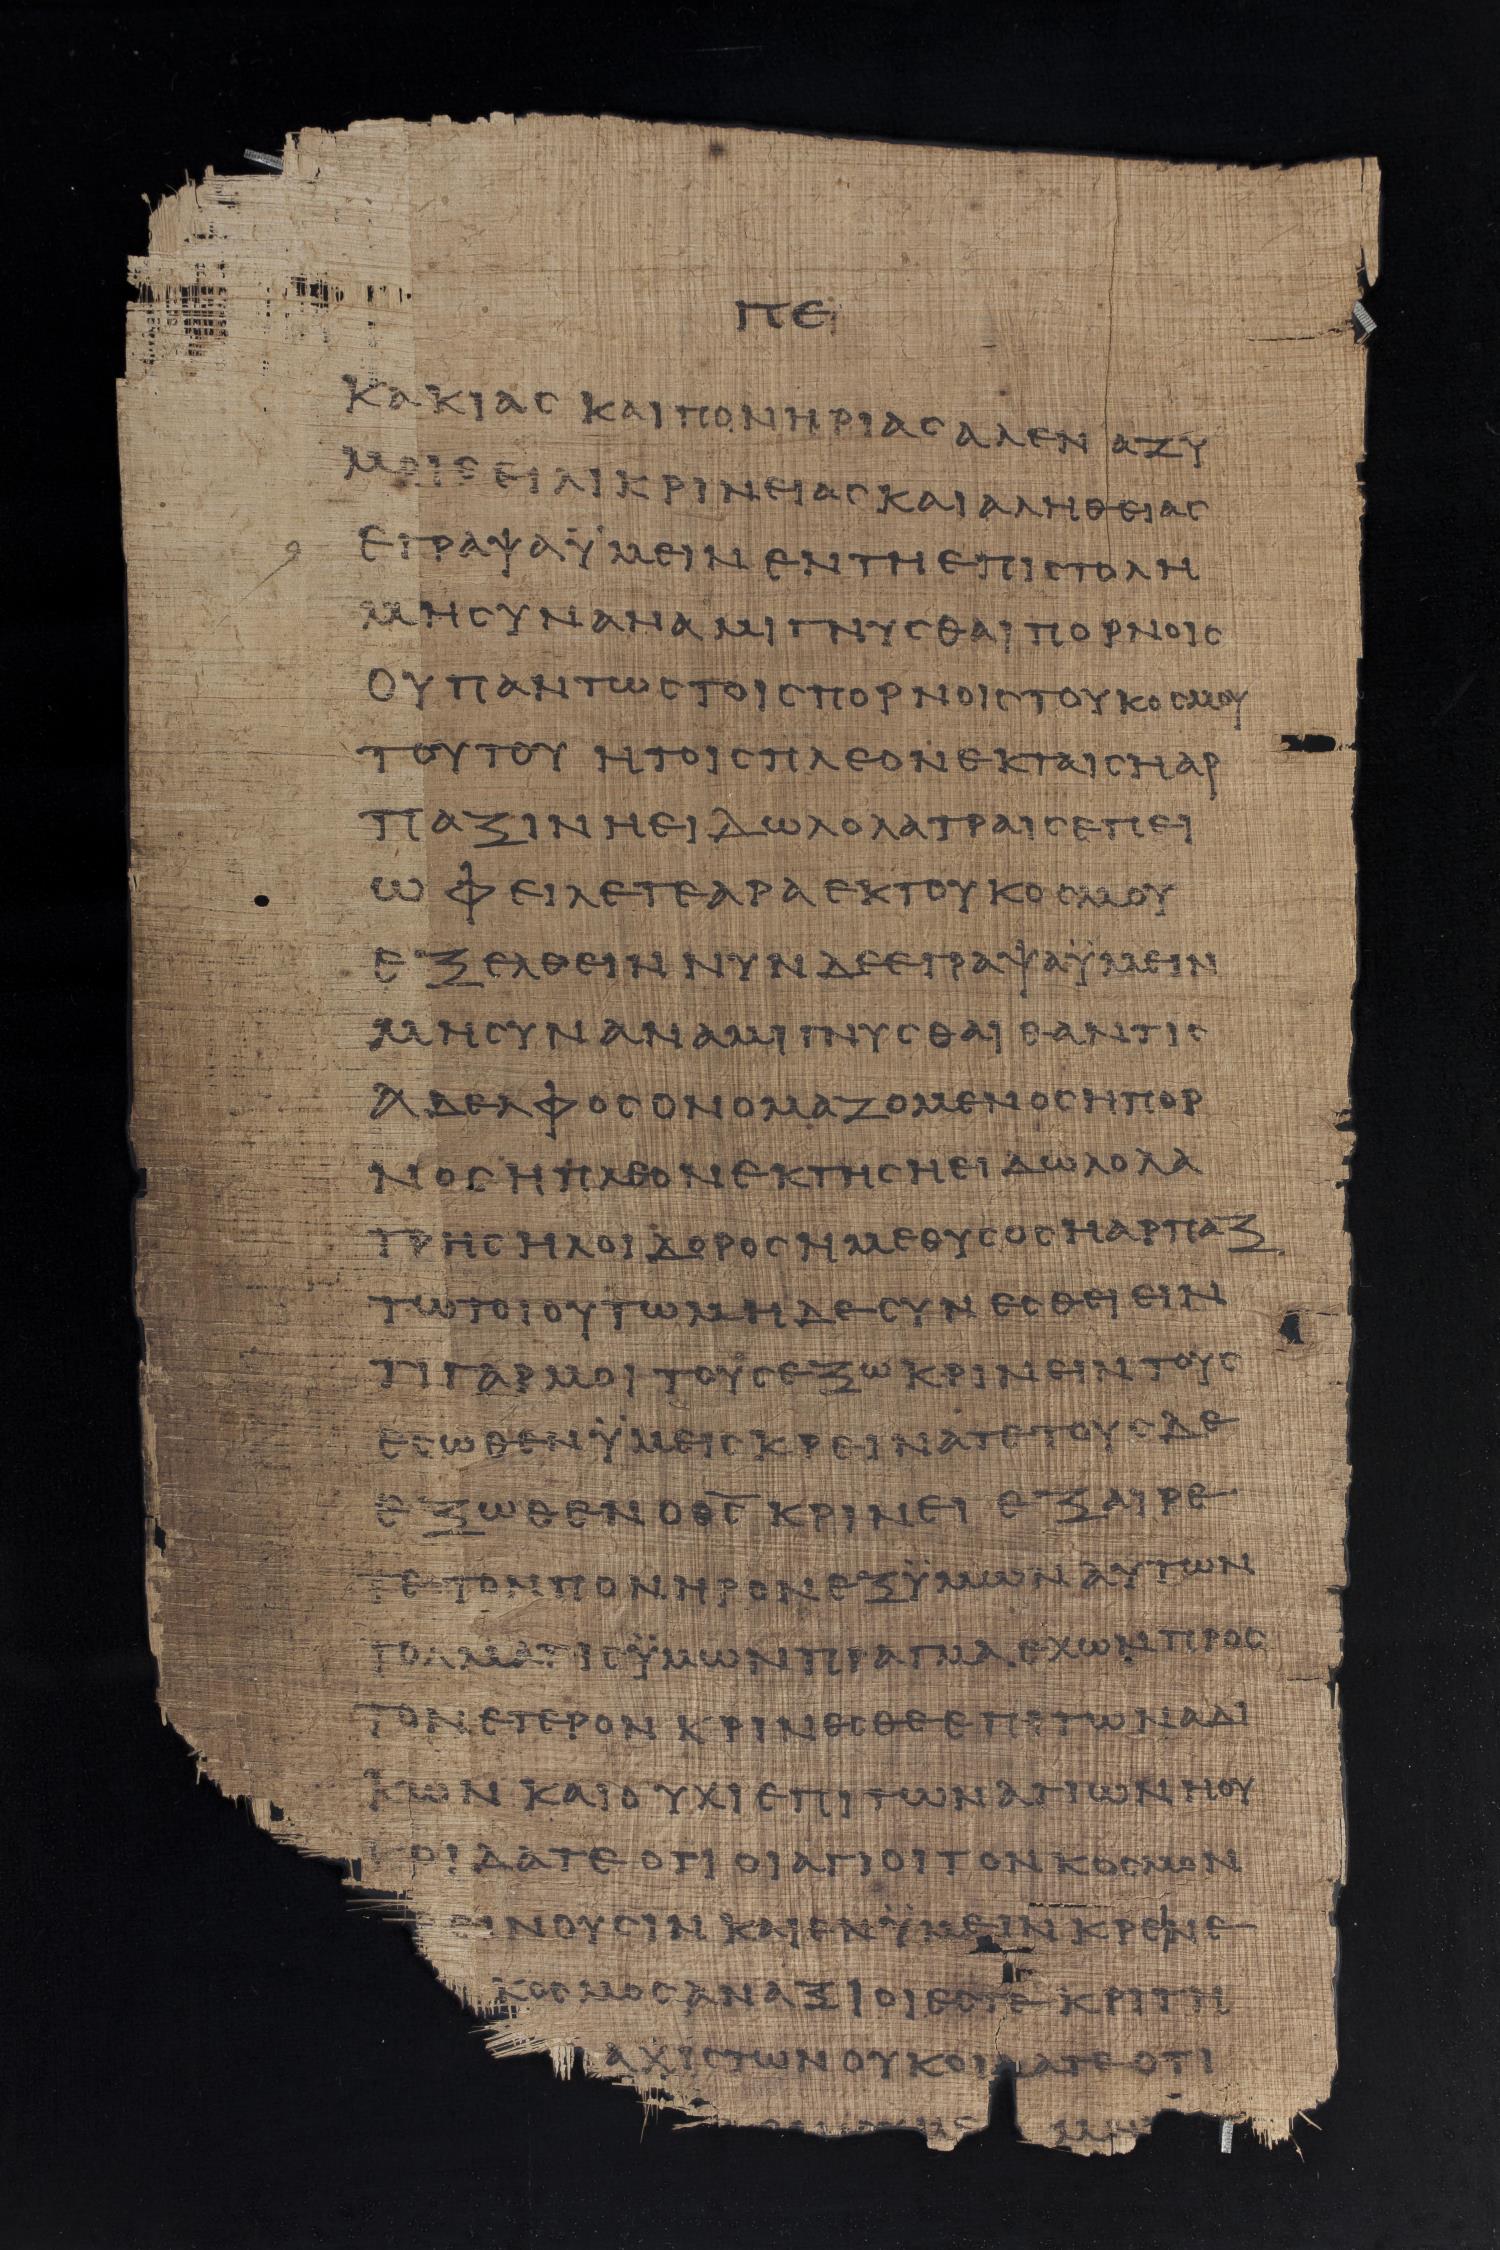 ΠΕ
ΚΑΚΙΑС ΚΑΙΠΟΝΗΡΙΑСΑΛΕΝ ΑΖΥ
ΜΟΙСΕΙΛΙΚΡΙΝΕΙΑСΚΑΙΑΛΗΘΕΙΑС
ΕΓΡΑΨΑΫΜΕΙΝΕΝΤΗΕΠΙСΤΟΛΗ
ΜΗСΥΝΑΝΑΜΙΓΝΥСΘΑΙΠΟΡΝΟΙС
ΟΥΠΑΝΤΩСΤΟΙСΠΟΡΝΟΙСΤΟΥΚΟСΜΟΥ
ΤΟΥΤΟΥ ΗΤΟΙСΠΛΕΟΝΕΚΤΑΙСΗΑΡ
ΠΑΞΙΝΗΕΙΔΩΛΟΛΑΤΡΑΙСΕΠΕΙ
ΩΦΕΙΛΕΤΕΑΡΑΕΚΤΟΥΚΟСΜΟΥ
ΕΞΕΛΘΕΙΝΝΥΝΔΕΕΓΡΑΨΑΫΜΕΙΝ
ΜΗСΥΝΑΝΑΜΙΓΝΥСΘΑΙΕΑΝΤΙС
ΑΔΕΛΦΟСΟΝΟΜΑΖΟΜΕΝΟСΗΠΟΡ
ΝΟСΗΠΛΕΟΝΕΚΤΗСΗΕΙΔΩΛΟΛΑ
ΤΡΗСΗΛΟΙΔΟΡΟСΗΜΕΘΥСΟСΗΑΡΠΑΞ
ΤΩΤΟΙΟΥΤΩΜΗΔΕСΥΝΕСΘΕΙΕΙΝ
ΤΙΓΑΡΜΟΙΤΟΥСΕΞΩΚΡΙΝΕΙΝΤΟΥС
ΕСΩΘΕΝΫΜΕΙСΚΡΕΙΝΑΤΕΤΟΥСΔΕ
ΕΞΩΘΕΝΟΘ̅С̅ ΚΡΙΝΕΙ ΕΞΑΙΡΕ
ΤΕΤΟΝΠΟΝΗΡΟΝΕΞΫΜΩΝΑΥΤΩΝ
ΤΟΛΜΑΤΙСΫΜΩΝΠΡΑΓΜΑΕΧΩΝΠΡΟС
ΤΟΝΕΤΕΡΟΝΚΡΙΝΕСΘΕΕΠΙΤΩΝΑΔΙ
ΚΩΝΚΑΙΟΥΧΙΕΠΙΤΩΝΑΓΙΩΝΗΟΥ
ΚΟΙΔΑΤΕΟΤΙΟΙΑΓΙΟΙΤΟΝΚΟСΜΟΝ
ΕΙΝΟΥСΙΝΚΑΙΕΝΫΜΕΙΝΚΡΕΙΝΕ
ΚΟСΜΟСΑΝΑΞΙΟΙΕСΤΕΚΡΙΤΗ
ΑΧΙСΤΩΝΟΥΚΟΙΔΑΤΕΟΤΙ